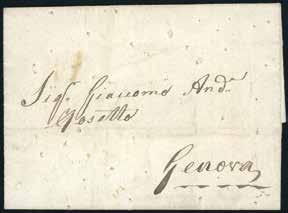 Sig.r Giacomo And.a
Rosetto
Genova